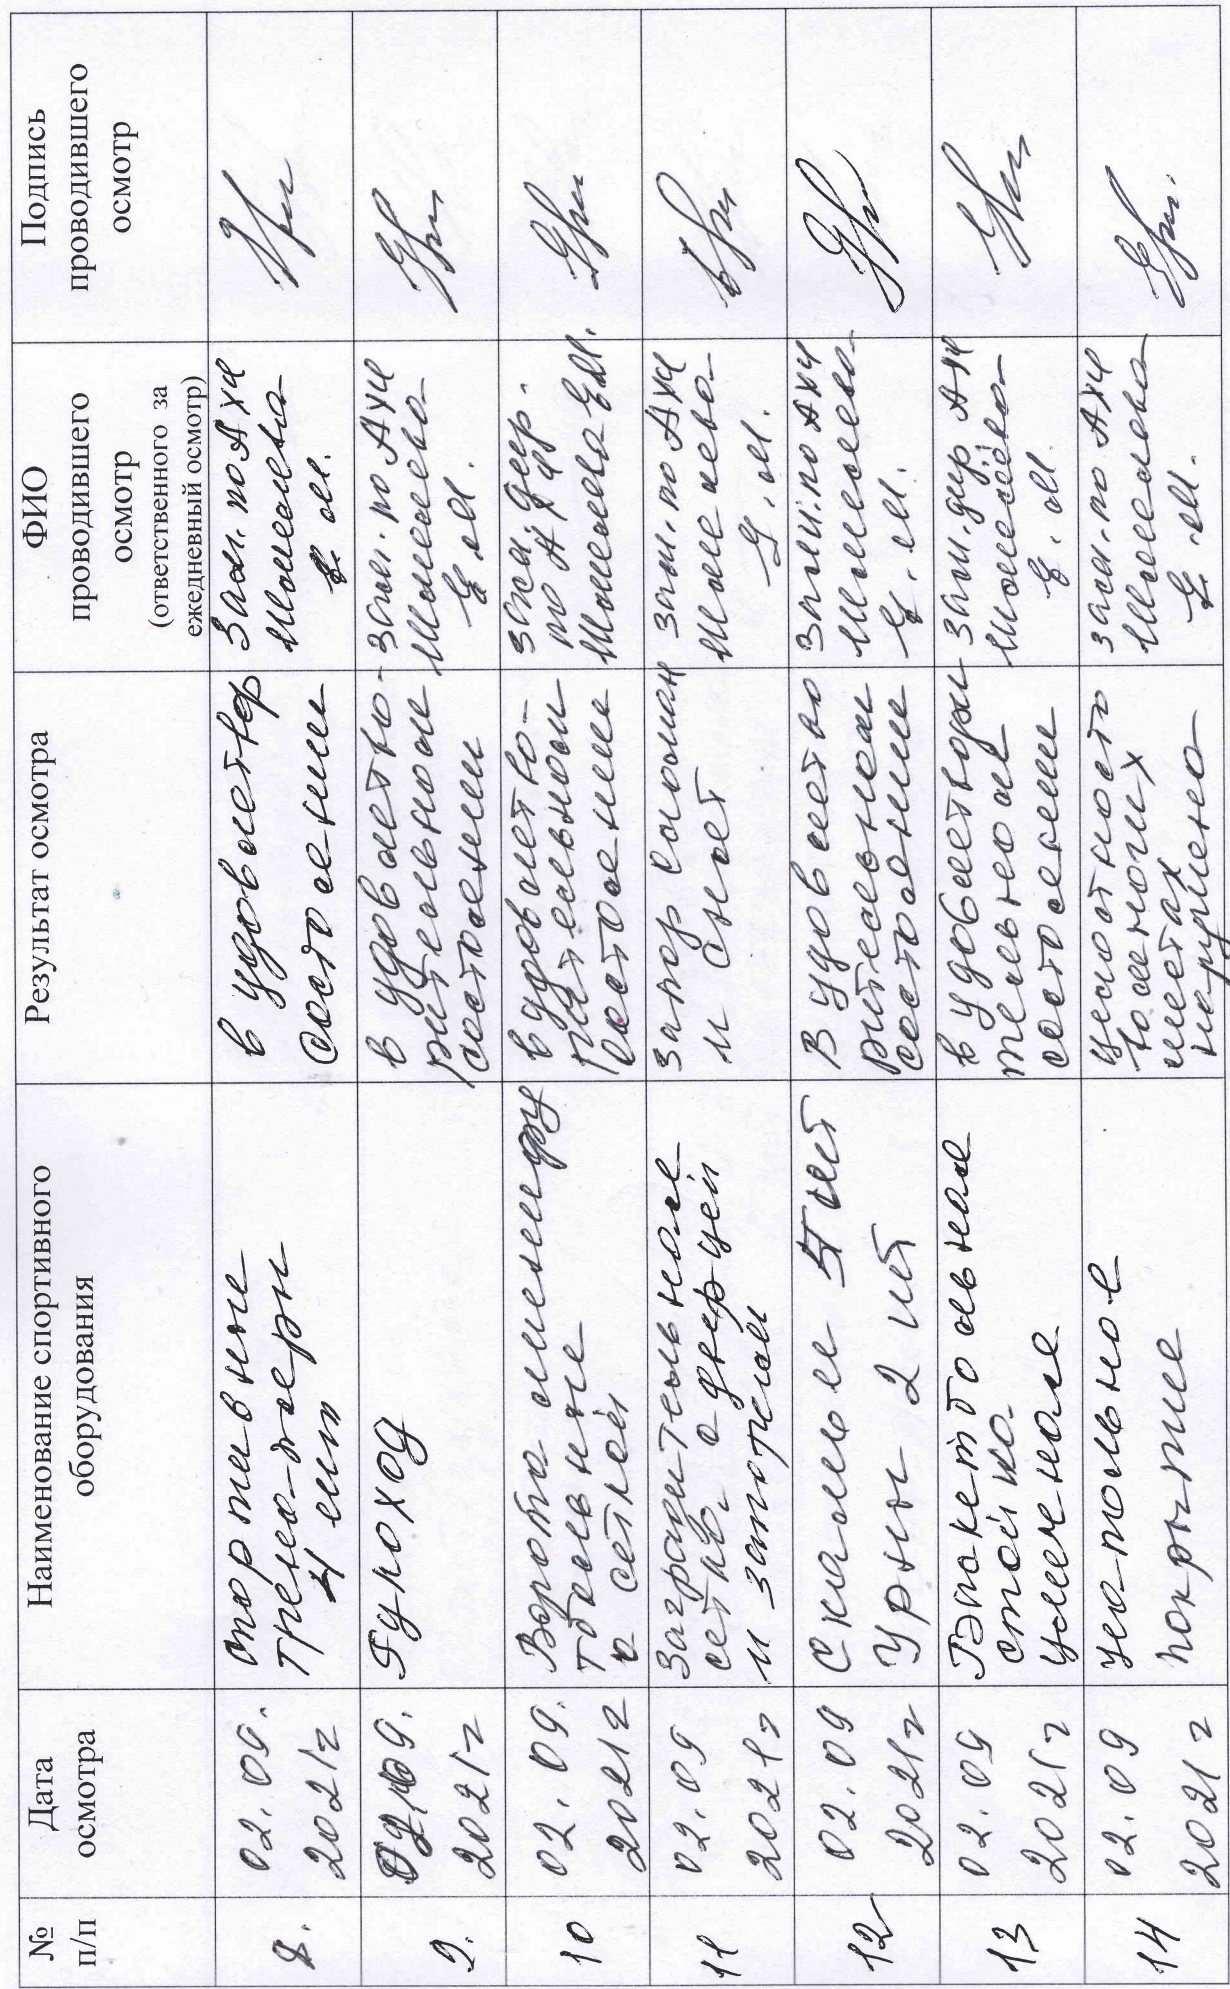 №
п/п
Дата
осмотра
Наименование спортивного
оборудования
Результат осмотра
ФИО
проводившего
осмотр
(ответственного за
ежедневный осмотр)
Подпись
проводившего
осмотр
8.
02.09.
2021г
спортивные
тренажеры
4 шт
в удовлетвор
состоянии
Зам. по АХЧ
Е.М.
9.
02.09.
2021г
Рукоход
в удовлетво-
рительном
состоянии
Зам. по АХЧ
Е.М.
10
02.09.
2021г
Ворота минифу
тбольные
с сеткой
в удовлетво-
рительном
состоянии
зам дир.
по АХЧ
Е.М.
11
02.09
2021г
Заградительная
сетка с дверцей
и запорами
запор сломан
и снят
зам. по АХЧ
Е.М.
12
02.09
2021г
Скамьи 5 шт
Урны 2 шт
В удовлетво
рительном
состоянии
Зам. по АХЧ
Е.М.
13
02.09
2021г
Баскетбольная
стойка
уличная
в удовлетвори
тельном
состоянии
Зам. дир АХЧ
Е.М.
14
02.09
2021г
покрытие
целостность
во многих
местах
нарушена
зам. по АХЧ
Е.М.